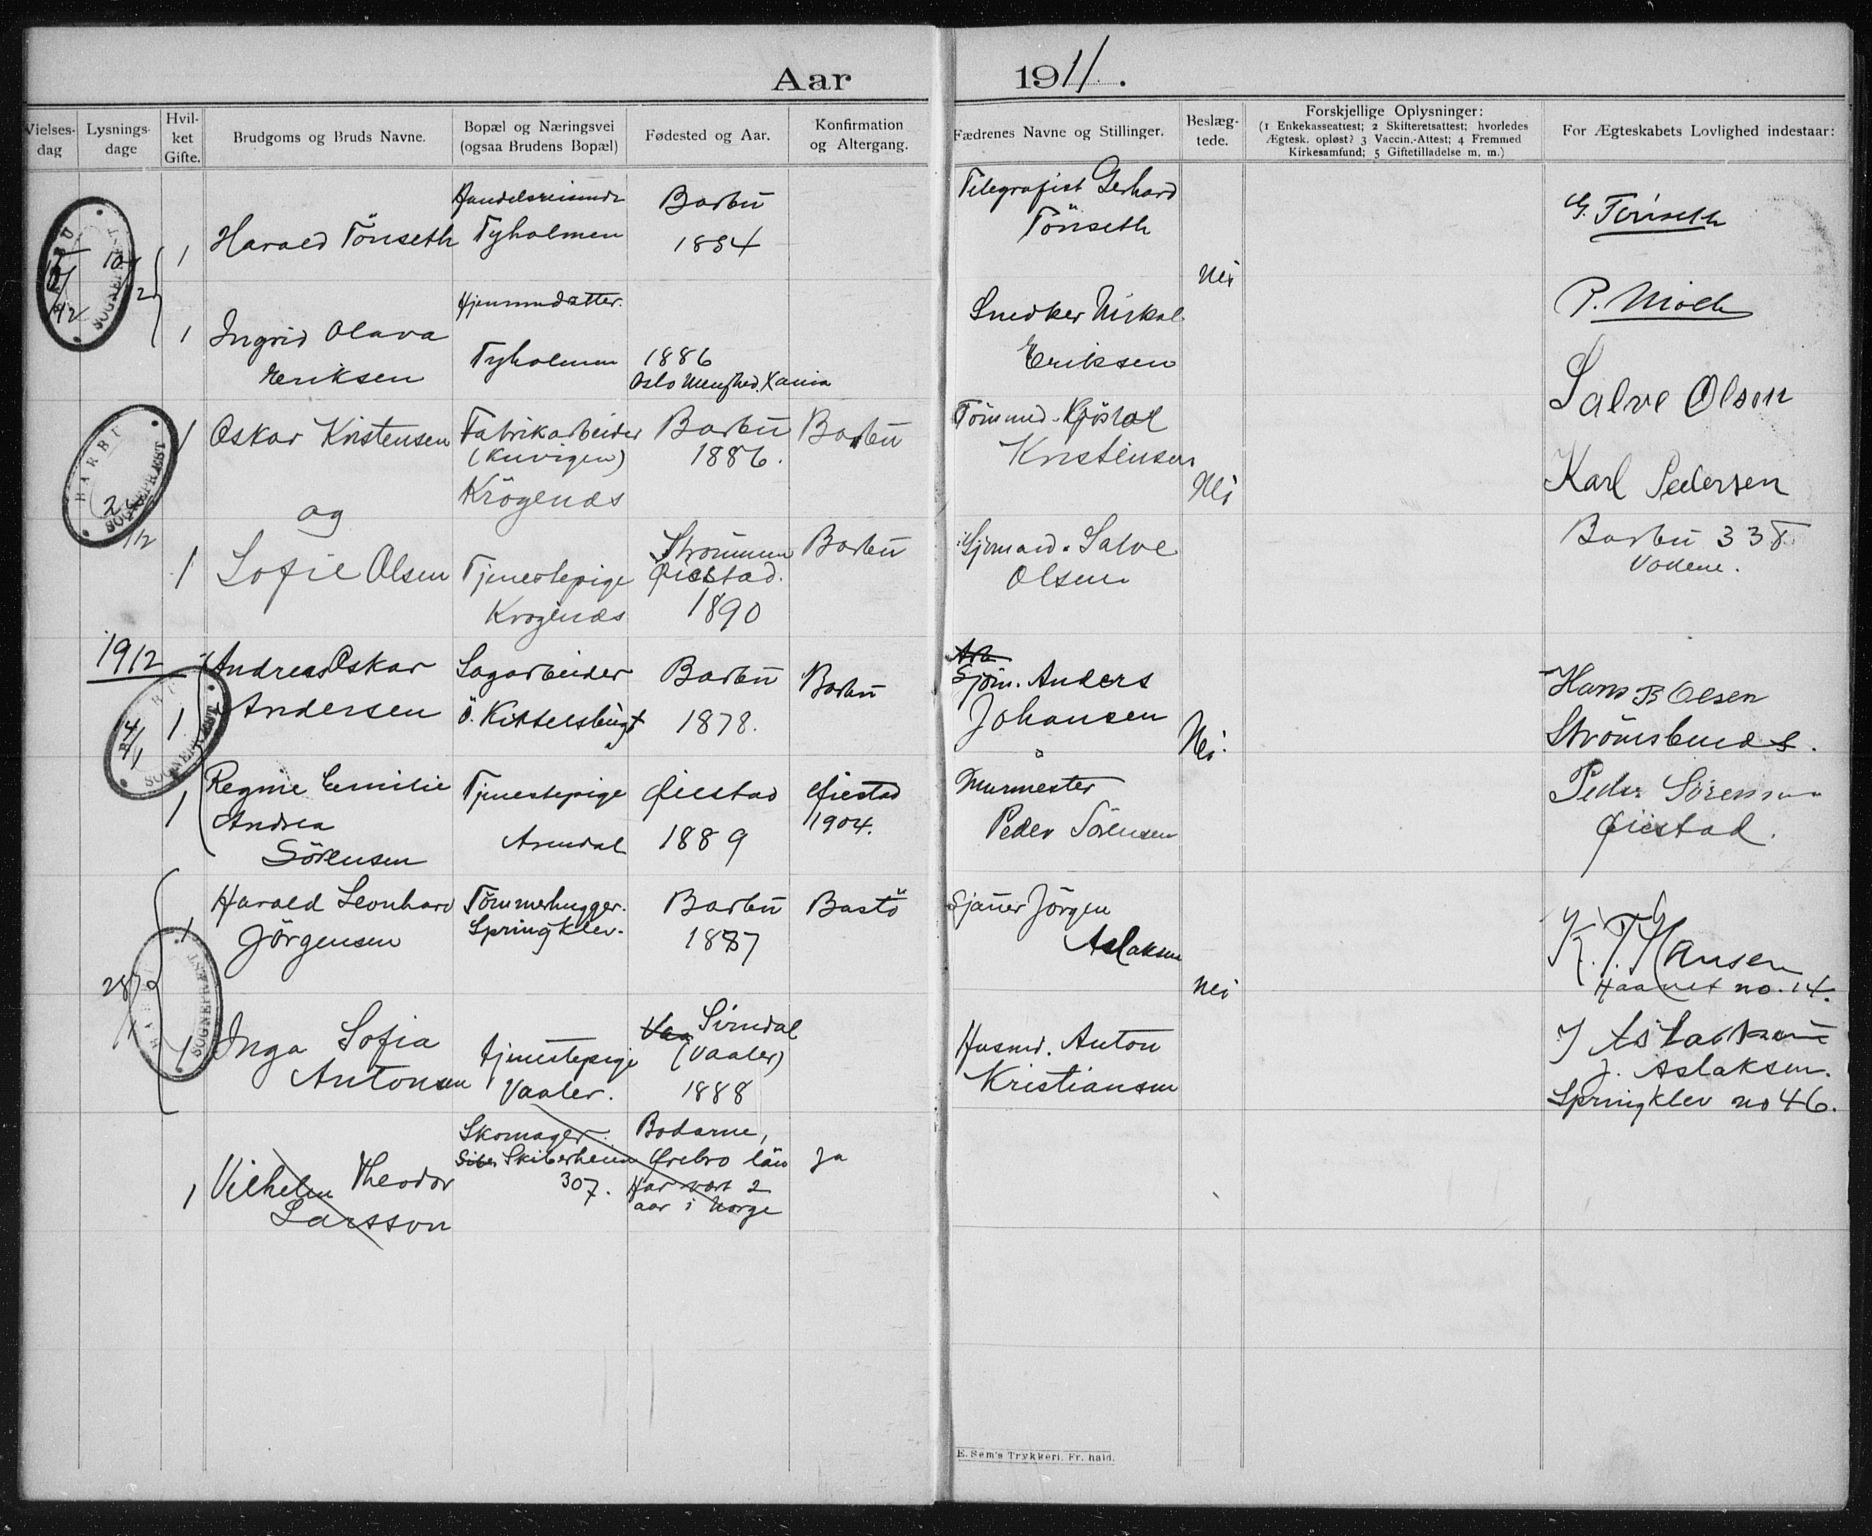 Aar 1911.
Vielses-
dag
Lysnings-
dage
Hvil-
ket
Gifte.
Brudgoms og Bruds Navne.
Bopæl og Næringsvei
(ogsaa Brudens Bopæl)
Fødested og Aar.
Konfirmation
og Altergang.
Fædrenes Navne og Stillinger.
Beslæg-
tede.
Forskjellige Oplysninger:
(1 Enkekasseattest; 2 Skifteretsattest; hvorledes
Ægtesk. opløst? 3 Vaccin.-Attest; 4 Fremmed
Kirkesamfund; 5 Giftetilladelse m. m.)
For Ægteskabets Lovlighed indestaar:
1
Harald Tönseth
Tyholmen
Barbu
1884
Telegrafist Gerhard
Tönseth
Nei
G. Tönseth
1
Ingrid Olava
Eriksen
Tyholmen
1886
Oslo Menighed. Xania
Snedker
Eriksen
1
Oskar Kristensen
Fabrikarbeider
Krögenæs
Barbu
1886.
Barbu
Kristensen
Nei
Salve Olsen
Karl Pedersen
Barbu 338
og
1
Sofie Olsen
Tjenestepige
Krogenæs
Øiestad.
1890
Barbu
Salve
Olsen
1912
4/1
1
Andreas Oskar
Andersen
Sagarbeider
Barbu
1878.
Barbu
Sjöm. Anders
Johansen
Nei.
Hans B Olsen
Strömsbu
1
Regine Emilie
Andrea
Sörensen
Tjenestepige
Arendal
Øiestad
1889
Øiestad
1904.
Murmester
Peder Sörensen
Peder Sörensen
Øiestad.
1
Harald Leonhard
Jörgensen
Tömmerhugger.
Springklev.
Barbu
1887
Jörgen
Aslaksen
Nei
K. T. Hansen
no. 14.
1
Inga Sofia
Antonsen
tjenestepige
Vaaler.
(Vaaler)
1888
Husmd. Anton
Kristiansen
J. Aslaksen.
Springklev no 46.
1
Vilhelm Theodor
Larsson
Skomager.
Skiberheien
307.
Bodarne,
Ørebro län
Har vært 2
aar i Norge
ja
BARBU
SOGNEPRÆST
BARBU
SOGNEPRÆST
SOGNEPRÆST
SOGNEPRÆST
E. Sem's Trykkeri. Fr. hald.